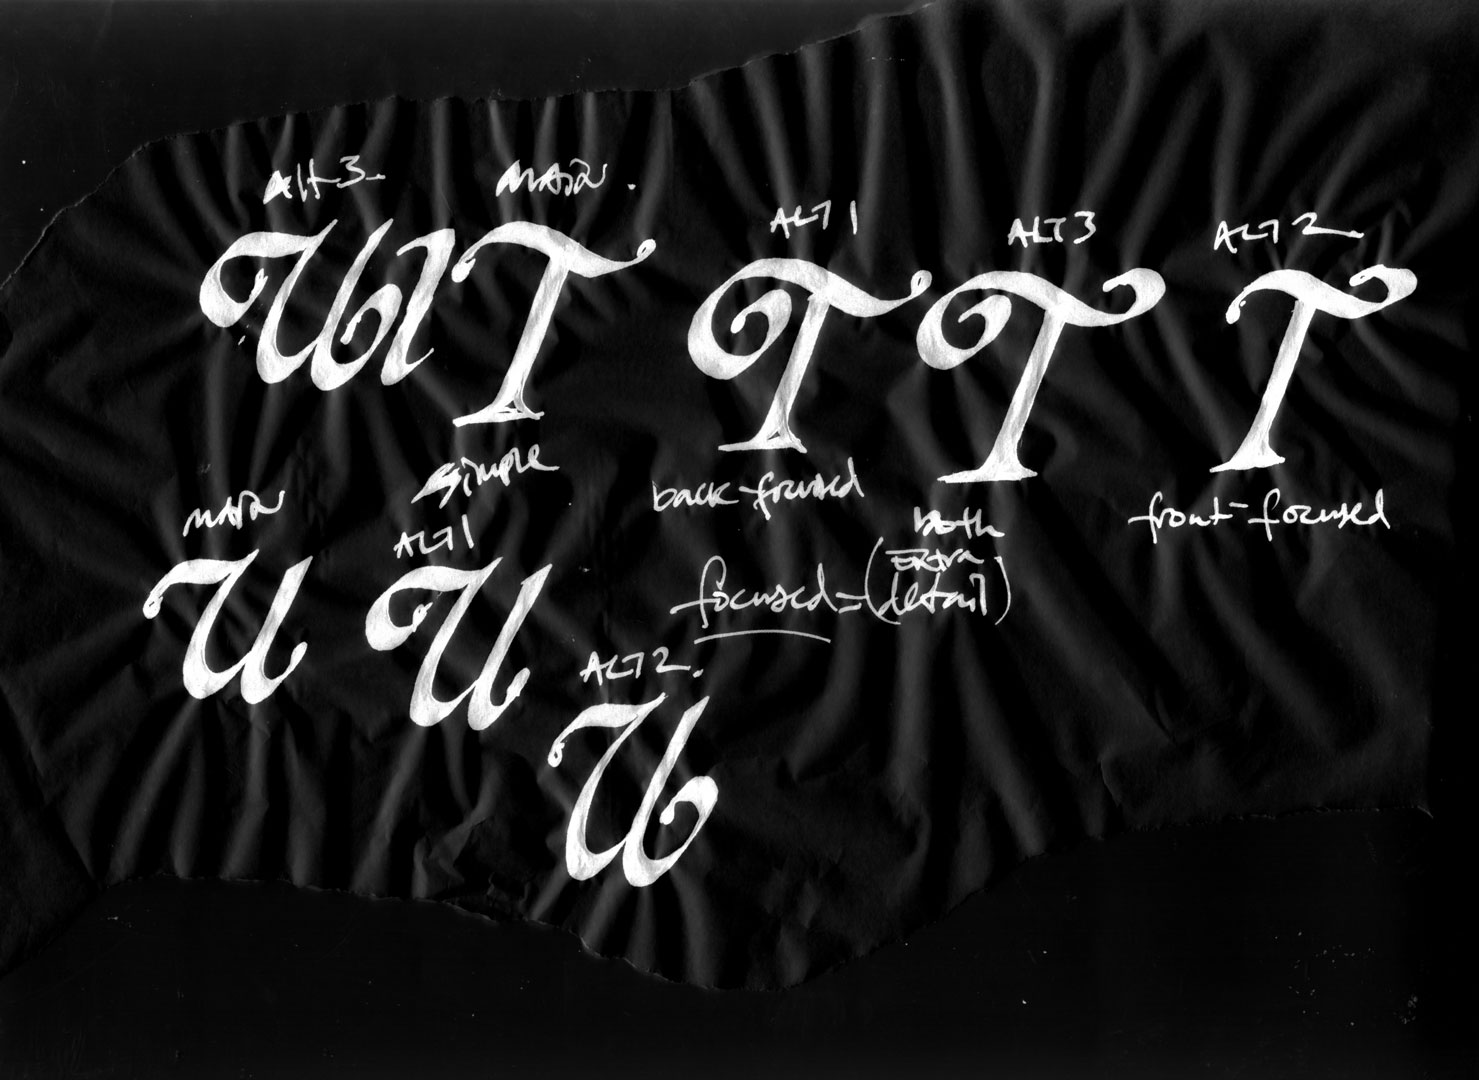 Alt 3.
MAIN.
ALT 1
ALT 3
ALT 2.
U
l
T
T
T
T
simple
back-focused
both
front-focused
MAIN
ALT 1
focused = (EXTRA detail)
U
U
ALT 2.
U